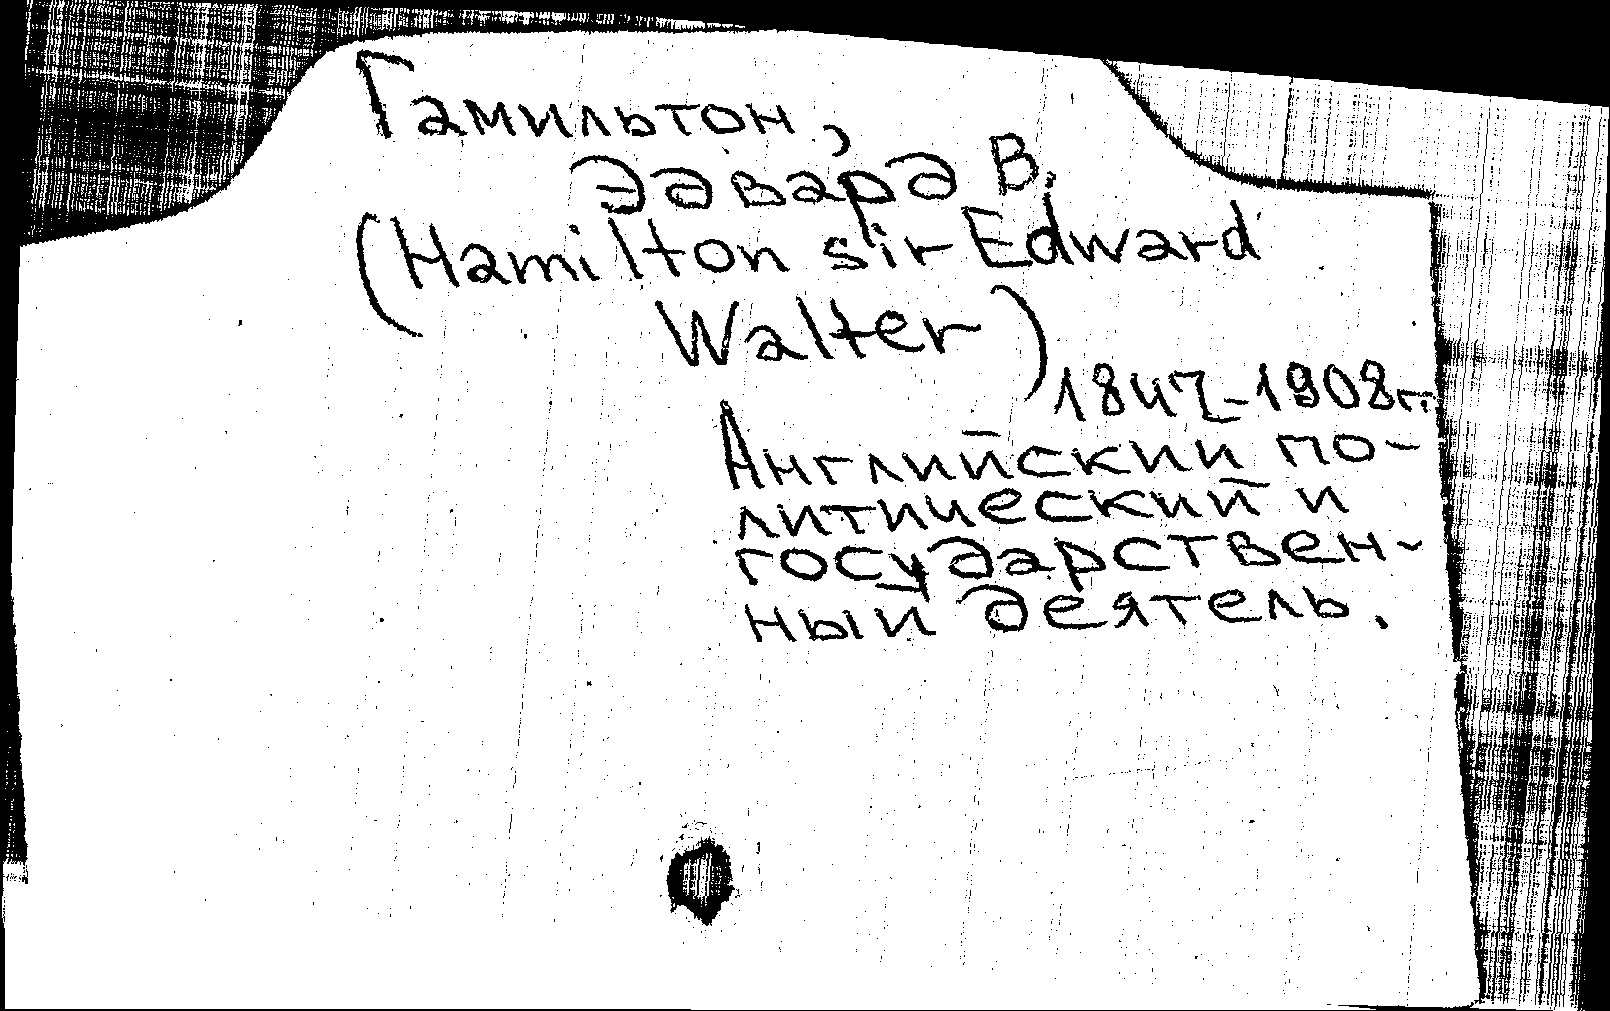 Гамильтон,
Эдвард В.
(Hamilton sir Edward
Walter)
1847-1908г.
Английский по-
литический и
государствен-
ный деятель.